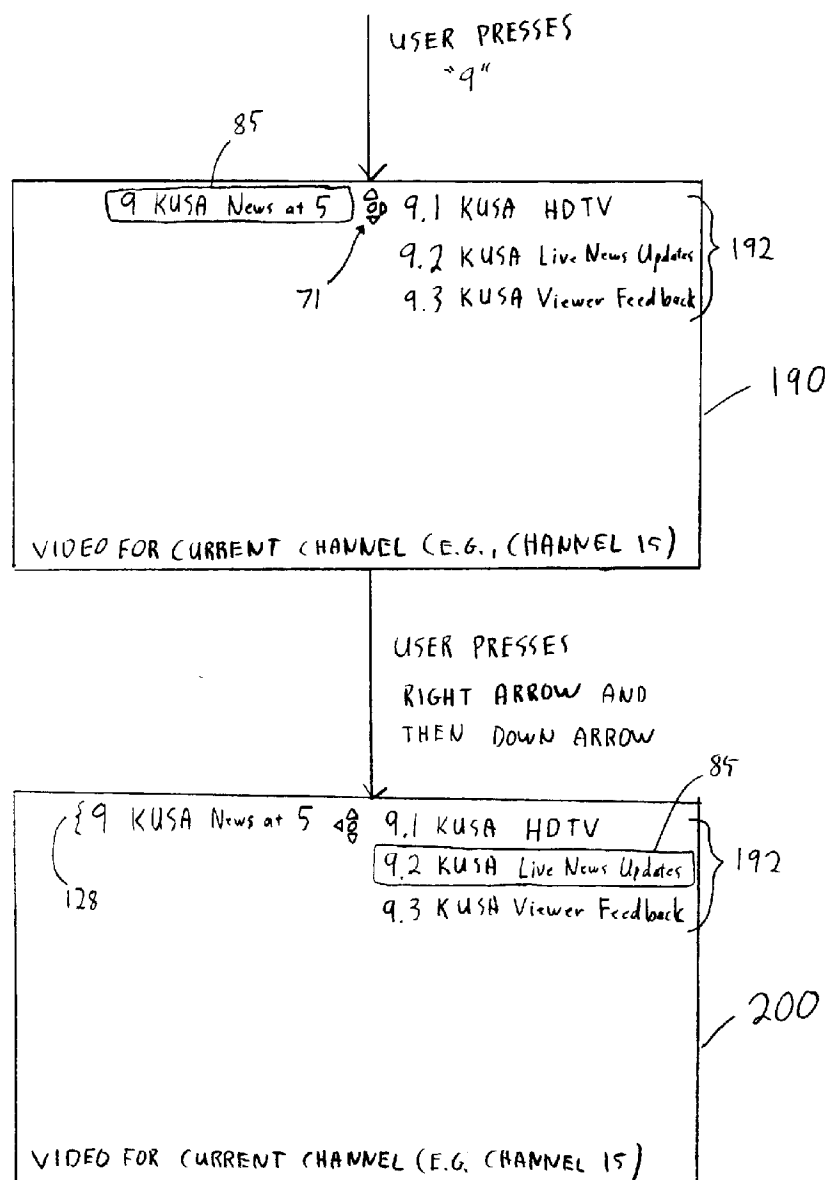 USER PRESSES
"9"
85
9 KUSA News at 5
9.1 KUSA HDTV
9.2 KUSA Live News Updates
9.3 KUSA Viewer Feedback
192
71
190
VIDEO FOR CURRENT CHANNEL (E.G., CHANNEL 15)
USER PRESSES
RIGHT ARROW AND
THEN DOWN ARROW
85
{9 KUSA News at 5
9.1 KUSA HDTV
9.2 KUSA Live News Updates
9.3 KUSA Viewer Feedback
192
128
200
VIDEO FOR CURRENT CHANNEL (E.G. CHANNEL 15)